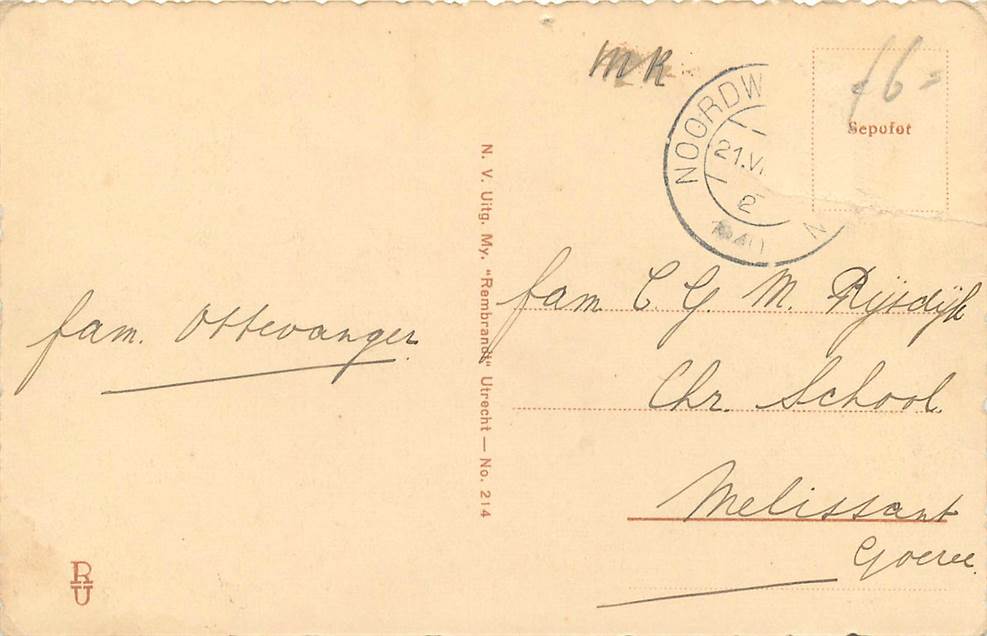 MR
NOORDW
21.VI
2
1940
N
f6=
Sepofot
N. V. Uitg. My. "Rembrandt" Utrecht — No. 214
fam. Ottevanger
fam. C. G. M. Rijsdijk
Chr. School.
Melissant
Goeree.
RU